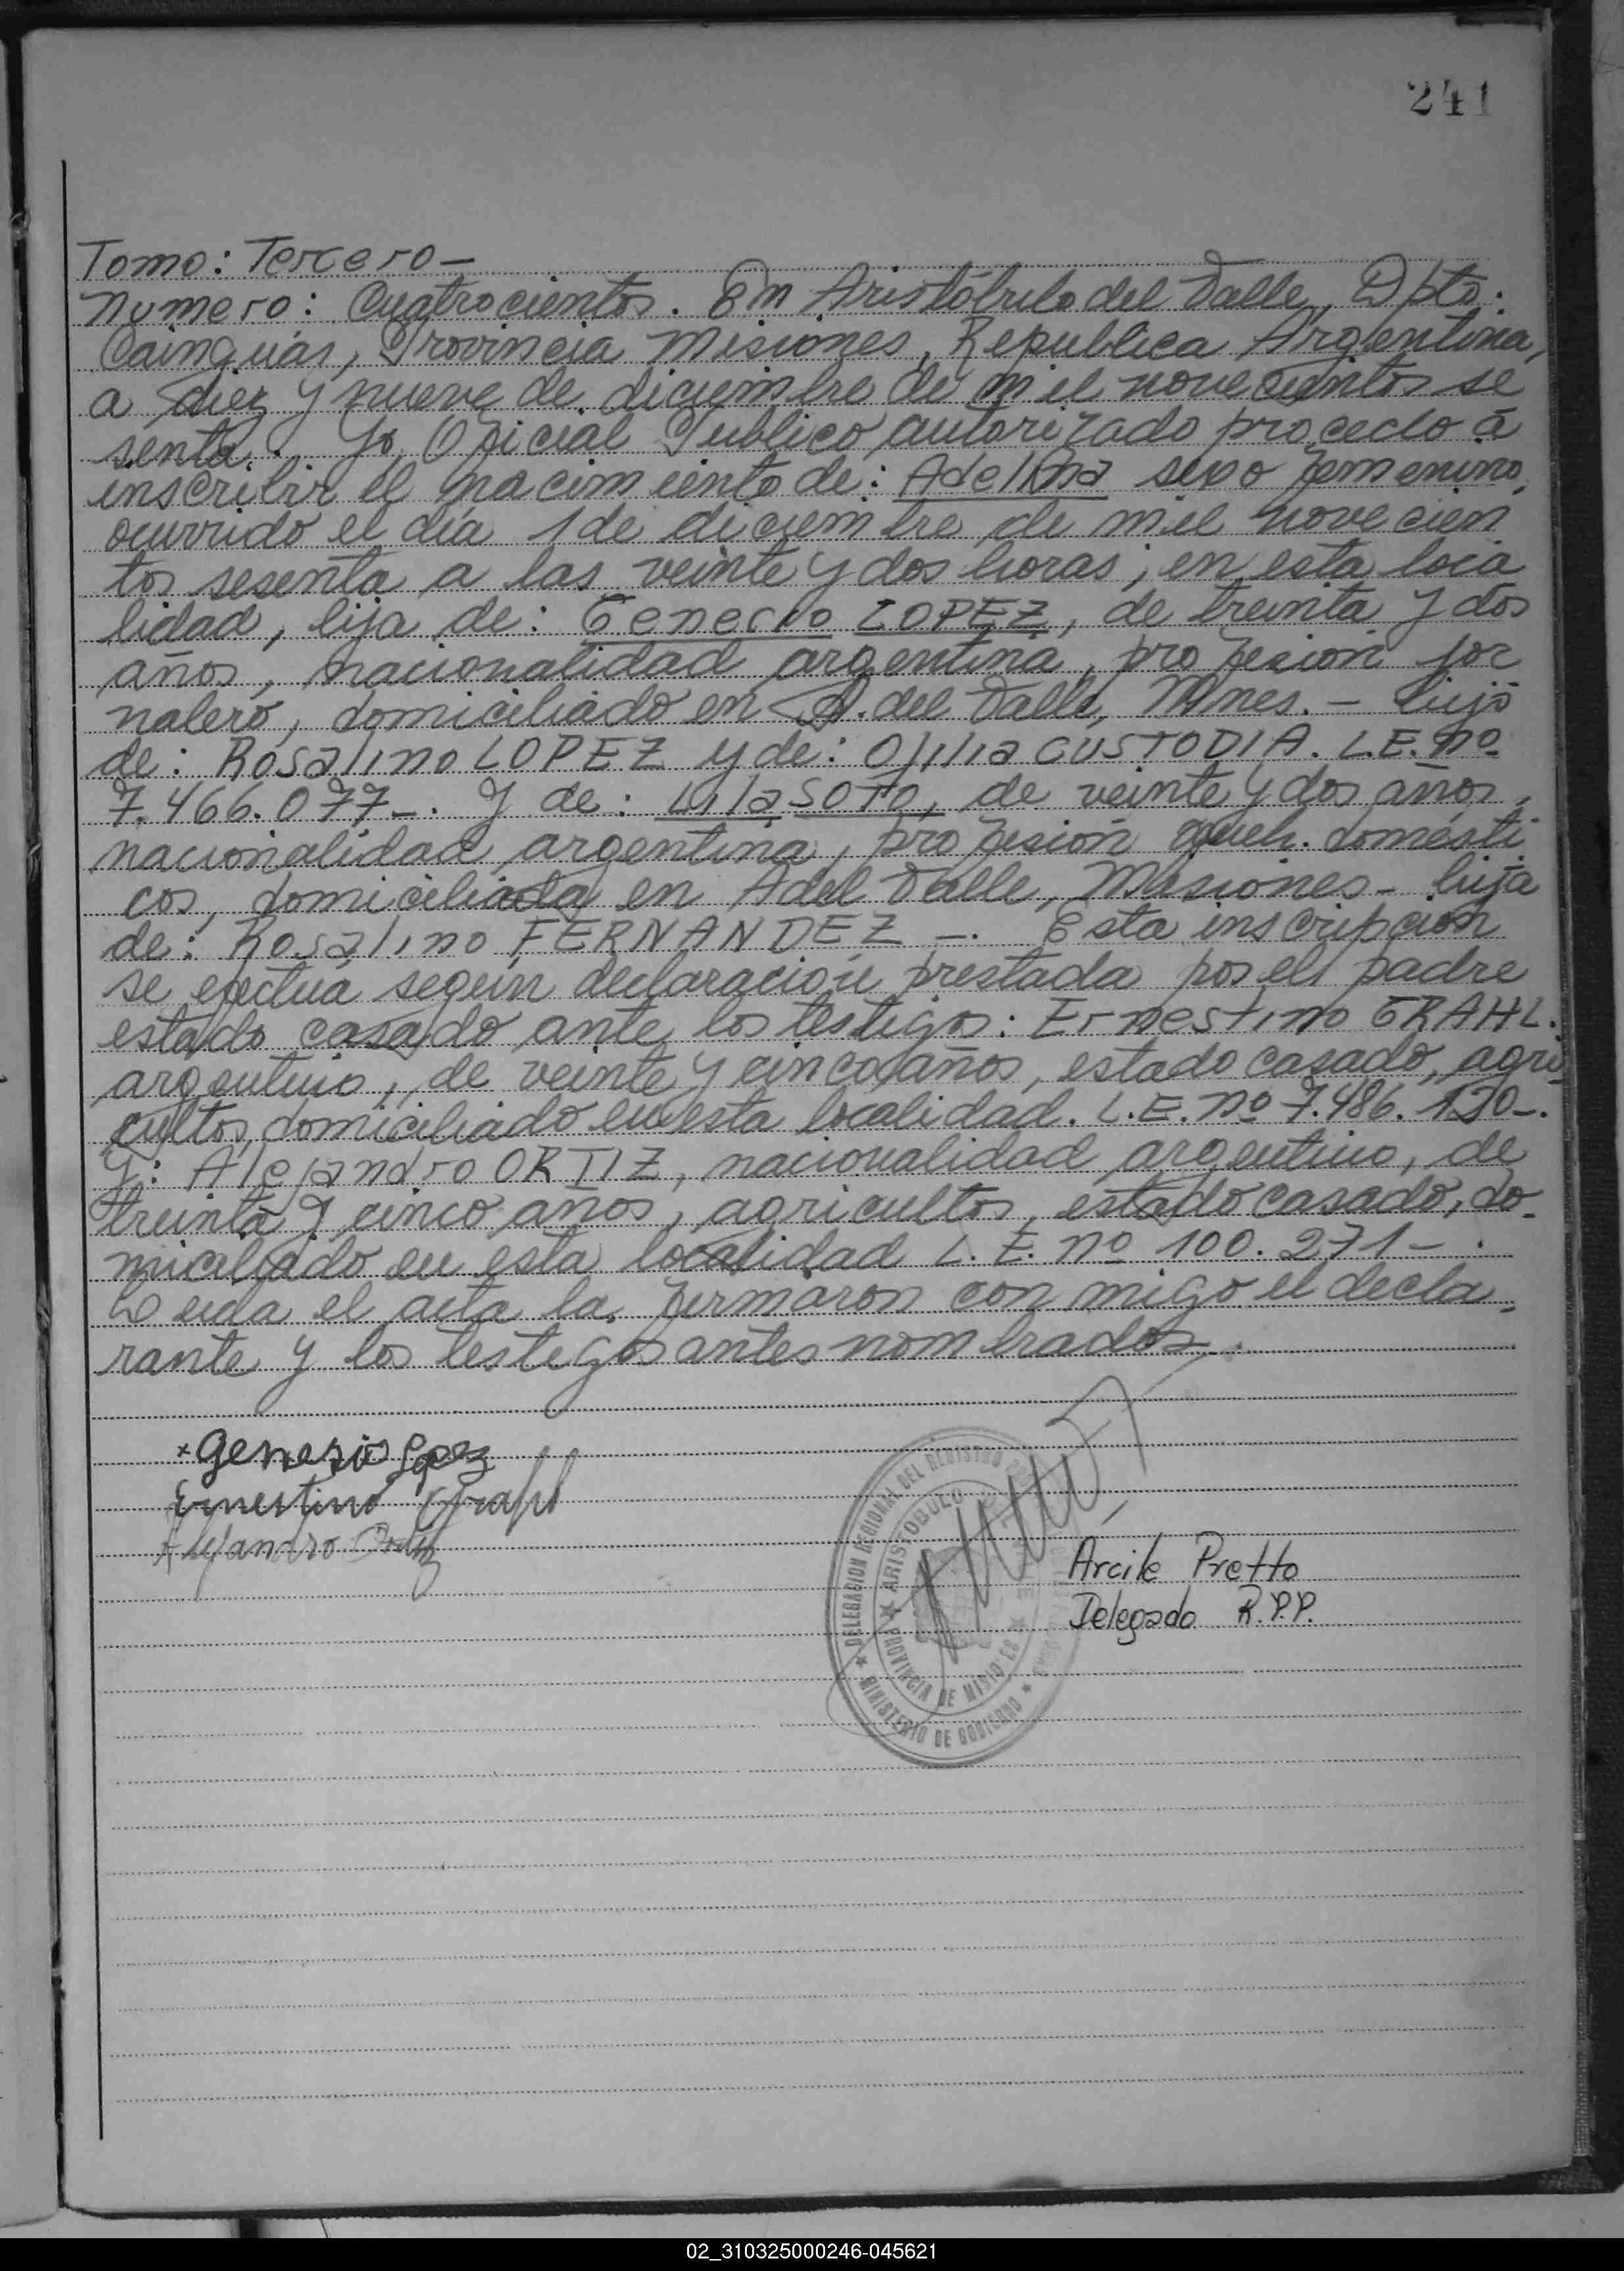 241
Tomo: Tercero —
Numero: Cuatrocientos. En Aristóbulo del Valle, Dpto.
Cainguás, Provincia Misiones, Republica Argentina,
a diez y nueve de diciembre de mil novecientos se
senta. Yo, Oficial Publico autorizado procedo a
inscribir el nacimiento de: Adelina sexo femenino,
ocurrido el día 1 de diciembre de mil novecien
tos sesenta a las veinte y dos horas; en esta loca
lidad, hija de: Genecio LOPEZ, de treinta y dos
años, nacionalidad argentina, profesion jor
nalero, domiciliado en A. del Valle, Mnes. — hijo
de: Rosalino LOPEZ y de: Otilia CUSTODIA. L.E. nº
7.466.077—. Y de: Lila SOTO, de veinte y dos años,
nacionalidad argentina, profesión queh. domésti
cos, domiciliada en A del Valle, Misiones — hija
de: Rosalino FERNANDEZ —. Esta inscripcion
se efectúa según declaración prestada por el padre
estado casado ante los testigos: Ernestino GRAHL.
argentino, de veinte y cinco años, estado casado, agri
cultor, domiciliado en esta localidad. L.E. nº 7.486.190—.
Y: Alejandro ORTIZ, nacionalidad argentino, de
treinta y cinco años, agricultor, estado casado, do-
miciliado en esta localidad L.E. nº 100.271—.
Leida el acta la firmaron con migo el decla
rante y los testigos antes nombrados.
x Genezio Lopez
Ernestino Grahl
Alejandro Ortiz
DELEGACION REGIONAL DEL REGISTRO
ARISTOBULO
PROVINCIA DE MISIO ES
MINISTERIO DE GOBIERNO
Arcile Pretto
Delegado R.P.P.
02_310325000246-045621